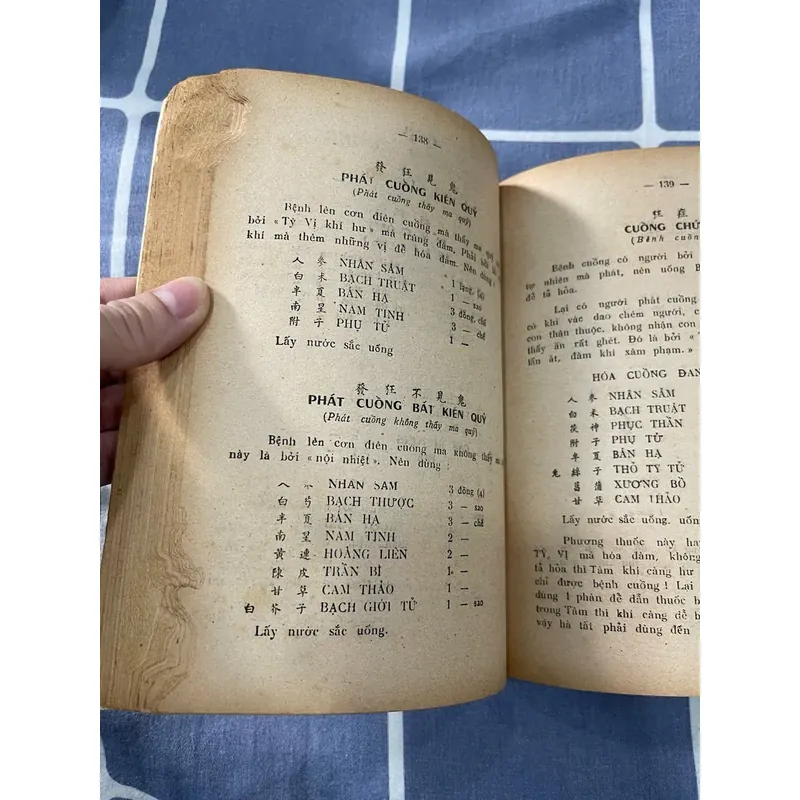 — 138 —
發 狂 見 鬼
PHÁT CUỒNG KIẾN QUỶ
(Phát cuồng thấy ma quỷ)
Bệnh lên cơn điên cuồng mà thấy ma quỷ
bởi «Tỳ Vị khí hư» mà tràng đầm. Phải bồi bổ
khí mà thêm những vị để hóa đàm. Nên dùng:
人 參 NHÂN SÂM 1 lạng, (a)
白 朮 BẠCH TRUẬT 1 —
半 夏 BÁN HẠ 1 — sao
南 星 NAM TINH 3 đồng, chế
附 子 PHỤ TỬ 3 — chế
1 —
Lấy nước sắc uống
發 狂 不 見 鬼
PHÁT CUỒNG BẤT KIẾN QUỶ
(Phát cuồng không thấy ma quỷ)
Bệnh lên cơn điên cuồng mà không thấy ma
này là bởi «nội nhiệt». Nên dùng :
人 參 NHÂN SÂM 3 đồng (a)
白 芍 BẠCH THƯỢC 3 — sao
半 夏 BÁN HẠ 3 — chế
南 星 NAM TINH 2 —
黃 連 HOÀNG LIÊN 2 —
陳 皮 TRẦN BÌ 1 —
甘 草 CAM THẢO 1 —
白 芥 子 BẠCH GIỚI TỬ 1 — sao
Lấy nước sắc uống.
— 139 —
狂 症
CUỒNG CHỨ
(Bệnh cuồng
Bệnh cuồng có người bởi
tự nhiên mà phát, nên uống B
để tả hỏa.
Lại có người phát cuồng
có khi vác dao chém người, c
con thân thuộc, không nhận con
thấy ăn rất ghét. Đó là bởi «
lấn át, đàm khí xâm phạm.»
HÓA CUỒNG ĐAN
人 參 NHÂN SÂM
白 朮 BẠCH TRUẬT
茯 神 PHỤC THẦN
附 子 PHỤ TỬ
半 夏 BÁN HẠ
兎 絲 子 THỎ TY TỬ
菖 蒲 XƯƠNG BỒ
甘 草 CAM THẢO
Lấy nước sắc uống. uốn
Phương thuốc này hay
TỲ, VỊ mà hóa đàm, không
tả hỏa thì Tâm khí càng hư
chỉ được bệnh cuồng ! Lại
dùng 1 phần để dẫn thuốc b
trong Tâm thì khí càng dễ b
vậy hà tất phải dùng đến